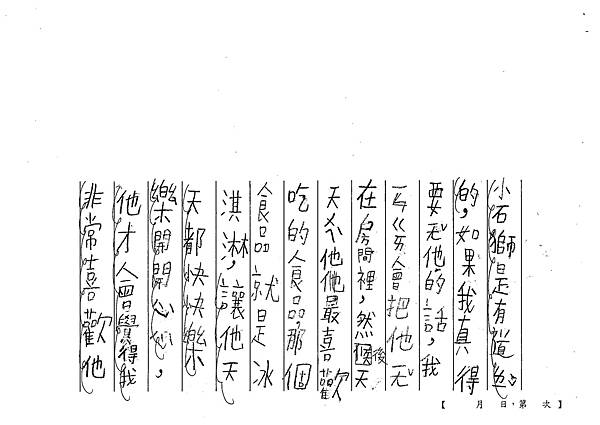 小石獅是有
的,如果我真得
要ㄧㄤˇ他的話,我
ㄧㄥㄍㄞ會把他ㄧㄤˇ
在房間裡,然後天
天介他他最喜歡
吃的食品,那個
食品就是冰
淇淋,讓他天
天都快快樂
樂開開心心,
他才會覺得我
非常喜歡他
【 月 日,第 次】